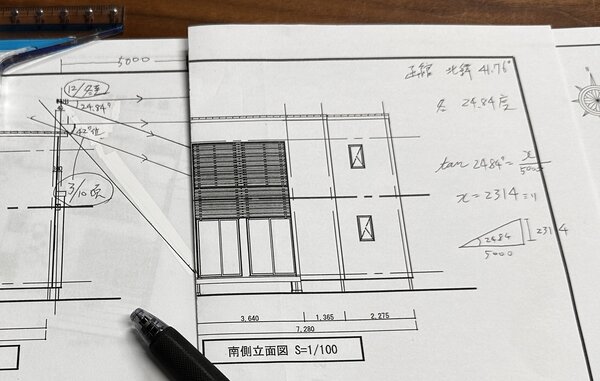 5000
函館 北緯 41.76°
冬 24.84度
12/冬至
24.84°
42°位
3/10頃
tan 24.84° = x/5000
x = 2314ミリ
24.84
2314
5000
3.640
1.365
2.275
7.280
南側立面図 S=1/100